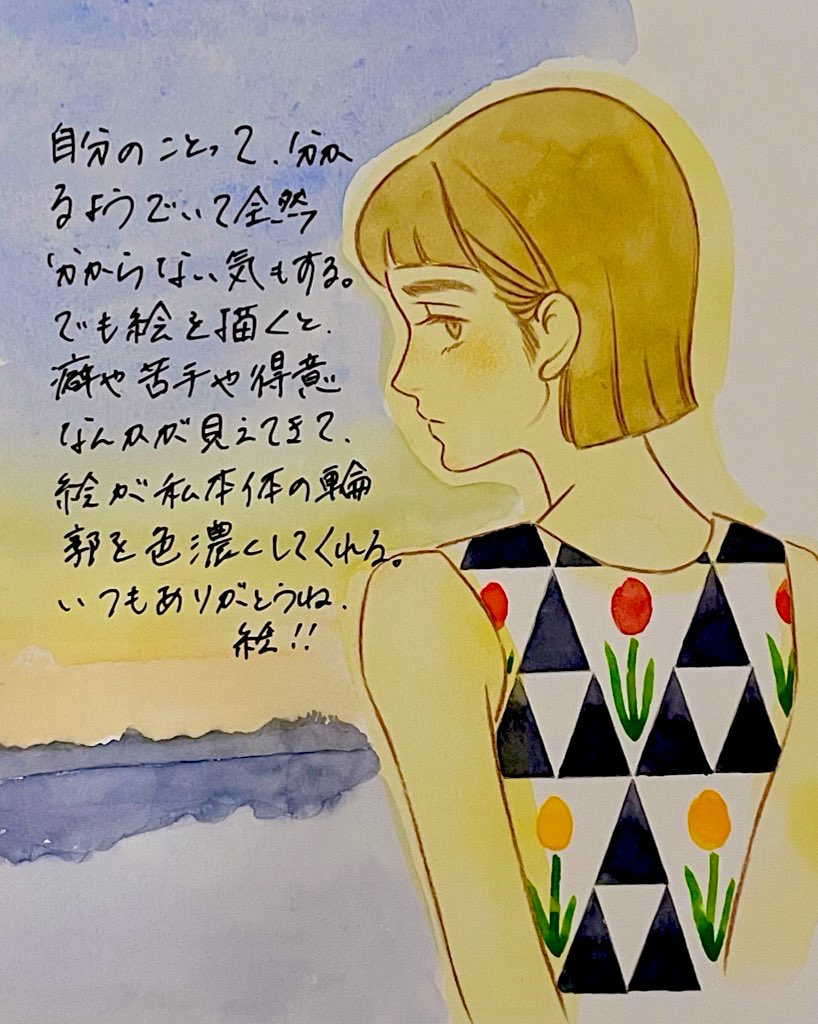 自分のことって、分か
るようでいて全然
分からない気もする。
でも絵を描くと、
癖や苦手や得意
なんかが見えてきて、
絵が私本体の輪
郭を色濃くしてくれる。
いつもありがとうね、
絵!!